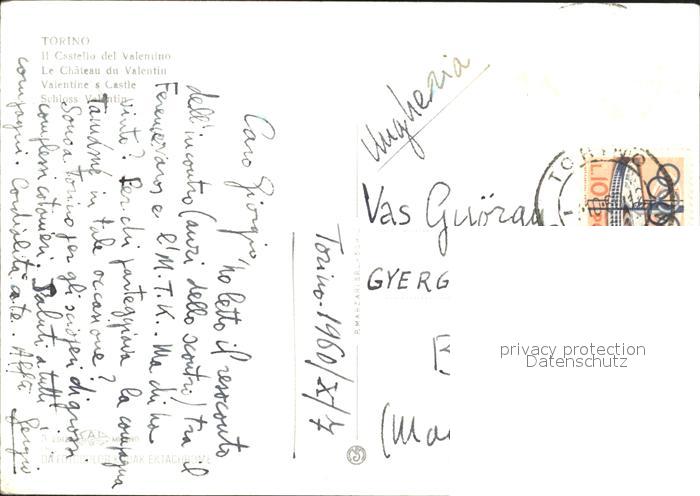 TORINO
Il Castello del Valentino
Le Château du Valentin
Valentine s Castle
Schloss Valentin
Caro Giorgio,
ho letto il resoconto
dell'incontro (anzi dello scontro) tra il
Ferencvaros e l'M.T.K.. Ma chi ha
vinto? Per chi parteggiava la compagna
in tale occasione?
Torino per gli scioperi di grossi
complessi cotonieri. Saluti a tutti i
compagni. Cordialità a te. Aff.
Sergio
Torino. 1960/XI/7
Ungheria
Vas
GYERG
(Ma
TORINO
privacy protection
Datenschutz